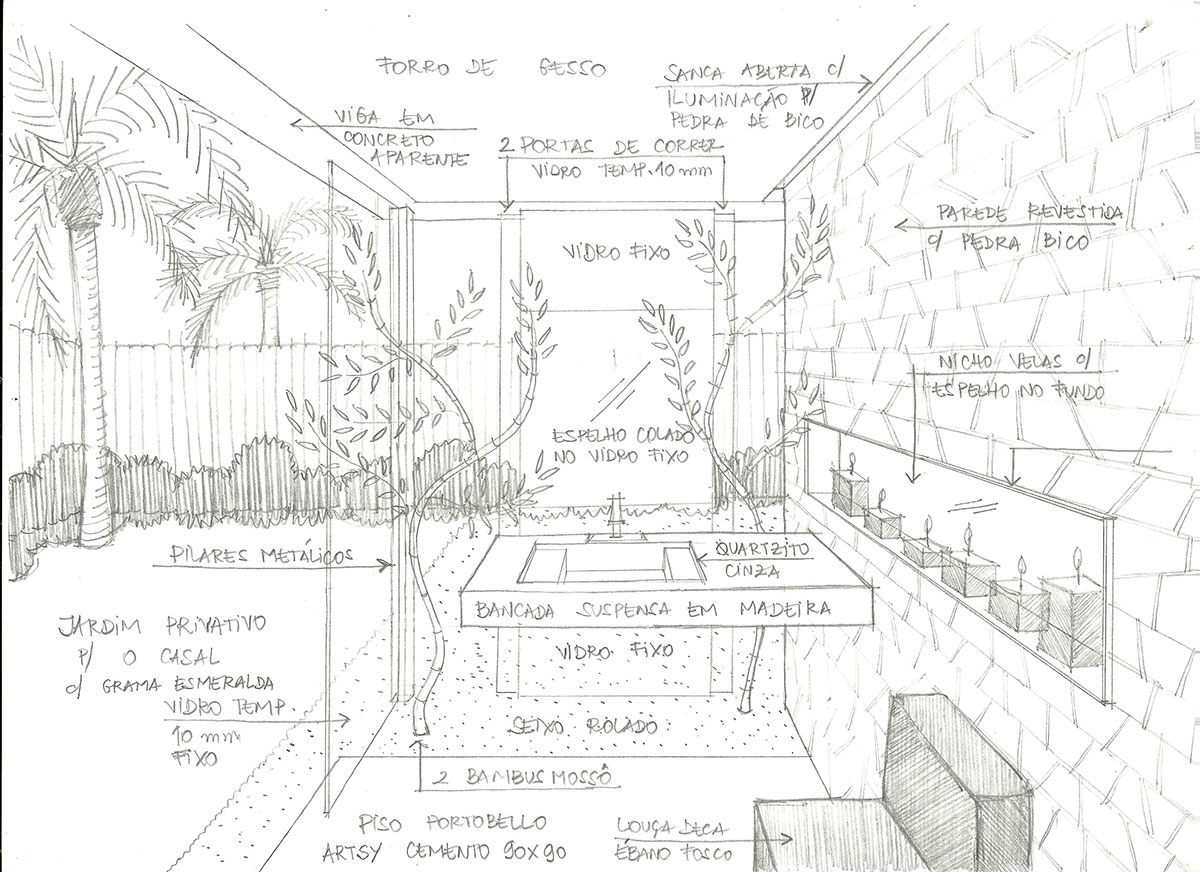 FORRO DE GESSO
SANCA ABERTA C/
ILUMINAÇÃO P/
PEDRA DE BICO
VIGA EM
CONCRETO
APARENTE
2 PORTAS DE CORRER
VIDRO TEMP. 10 mm
PAREDE REVESTIDA
C/ PEDRA BICO
VIDRO FIXO
NICHO VELAS C/
ESPELHO NO FUNDO
ESPELHO COLADO
NO VIDRO FIXO
PILARES METÁLICOS
QUARTZITO
CINZA
BANCADA SUSPENSA EM MADEIRA
JARDIM PRIVATIVO
P/ O CASAL
C/ GRAMA ESMERALDA
VIDRO TEMP
10 mm
FIXO
VIDRO FIXO
SEIXO ROLADO
2 BAMBUS MOSSÔ
PISO PORTOBELLO
ARTSY CEMENTO 90X90
LOUÇA DECA
ÉBANO FOSCO